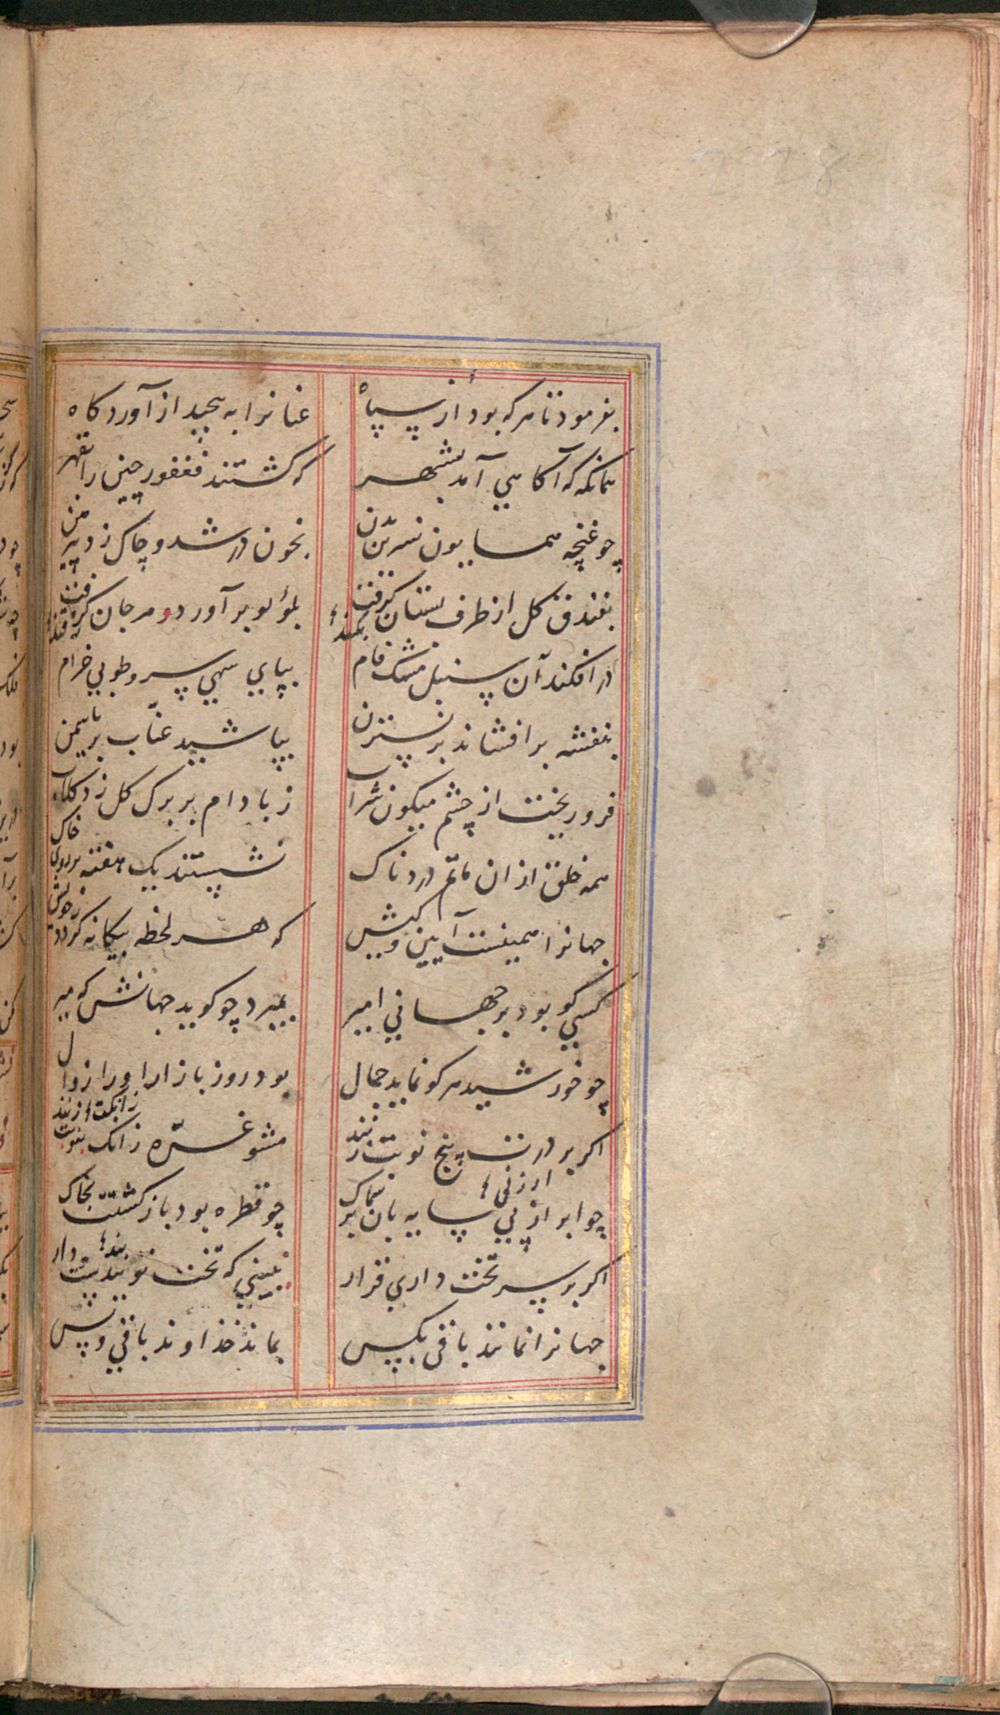 بفرمود تا هر که بود از سپاه عنانرا به پیچید از آوردکاه
همانکه که آکاهی آمد بشهر که کشتند فغفور چین را بقهر
چو غنچه همایون نسرین بدن بخون در شد و چاک زد پیرهن
بفندق کل از طرف بستان کرفت بلؤلو بر آورد و مرجان کرفت
در افکند آن سنبل مشک فام بپای سهی سرو طوبی خرام
بنفشه بر افشاند بر نسترن بپاشید عنّاب بر یاسمن
فرو ریخت از چشم میکون شراب ز بادام بر برک کل زد کلاب
همه خلق از ان ماتم دردناک نشستند یک هفته بر روی خاک
جهانرا همینست آیین و کیش که هر لحظه بیکانه کردد ز خویش
کسی کو بود بر جهانی امیر بمیرد چو کوید جهانش که میر
چو خورشید هر کو نماید جمال بود روز بازار او را زوال
اکر بر درت پنج نوبت زنند مشو غرّه زانک بنوبت زنند
چو ابر ار زنی سایه بان بر سماک چو قطره بود بازکشتت بخاک
اکر بر سر تخت داری قرار نبینی که تخت تو بندیت دار
جهانرا نماند باقی بکس بماند خداوند باقی و بس